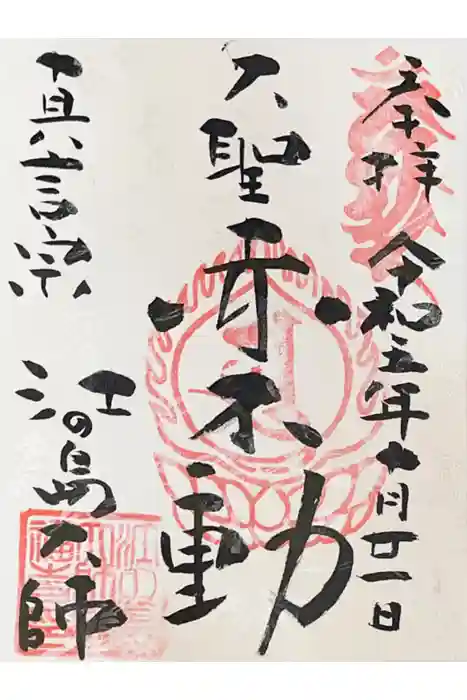 奉拝 令和五年十月廿一日
大聖赤不動
真言宗
江の島大師